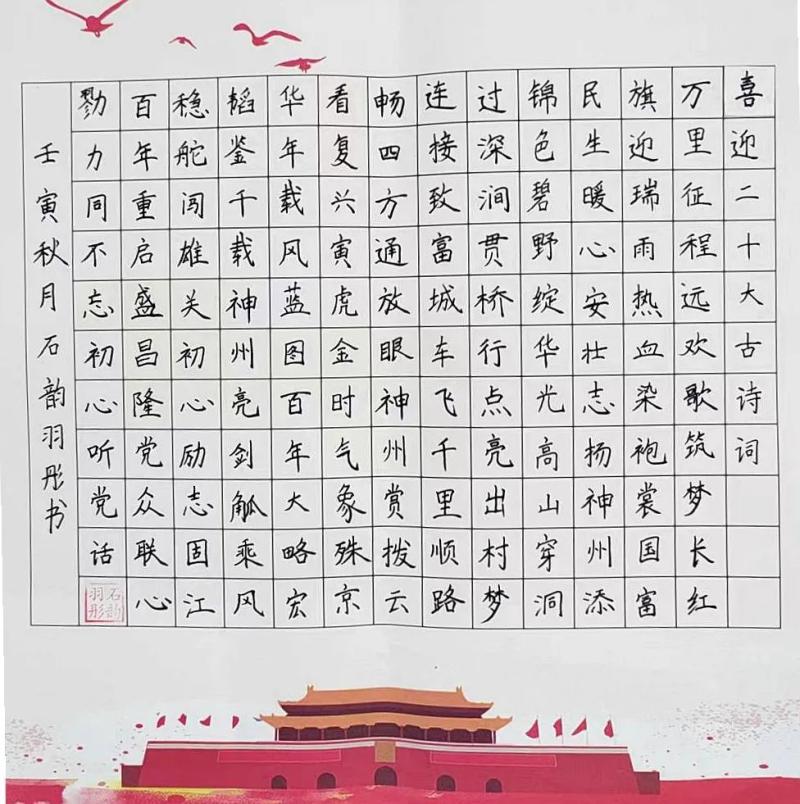 喜迎二十大古诗词
万里征程远欢歌筑梦长红
旗迎瑞雨热血染袍裳国富
民生暖心安壮志扬神州添
锦色碧野绽华光高山穿洞
过深涧贯桥行点亮出村梦
连接致富城车飞千里顺路
畅四方通放眼神州赏拨云
看复兴寅虎金时气象殊京
华年载风蓝图百年大略宏
韬鉴千载神州亮剑觚乘风
稳舵闯雄关初心励志固江
百年重启盛昌隆党众联心
勠力同不忘初心听党话
壬寅秋月石韵羽彤书
石韵羽彤